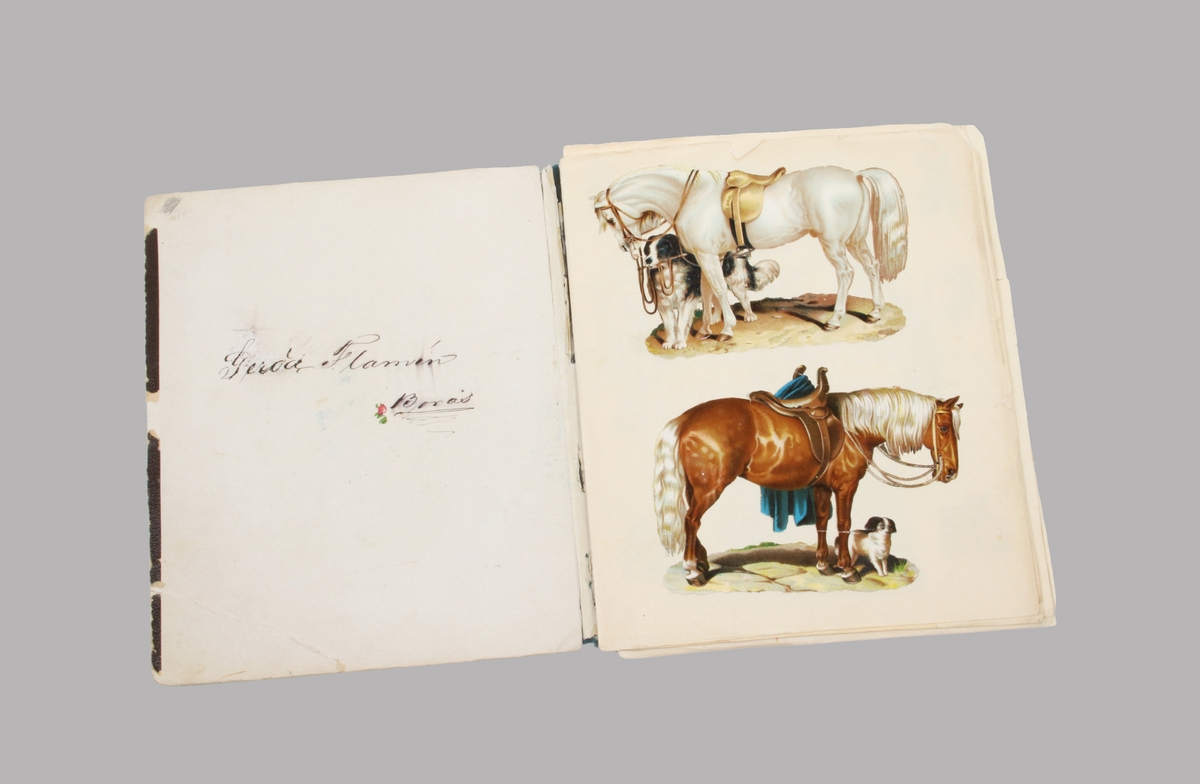 Gerda Flamén
Borås